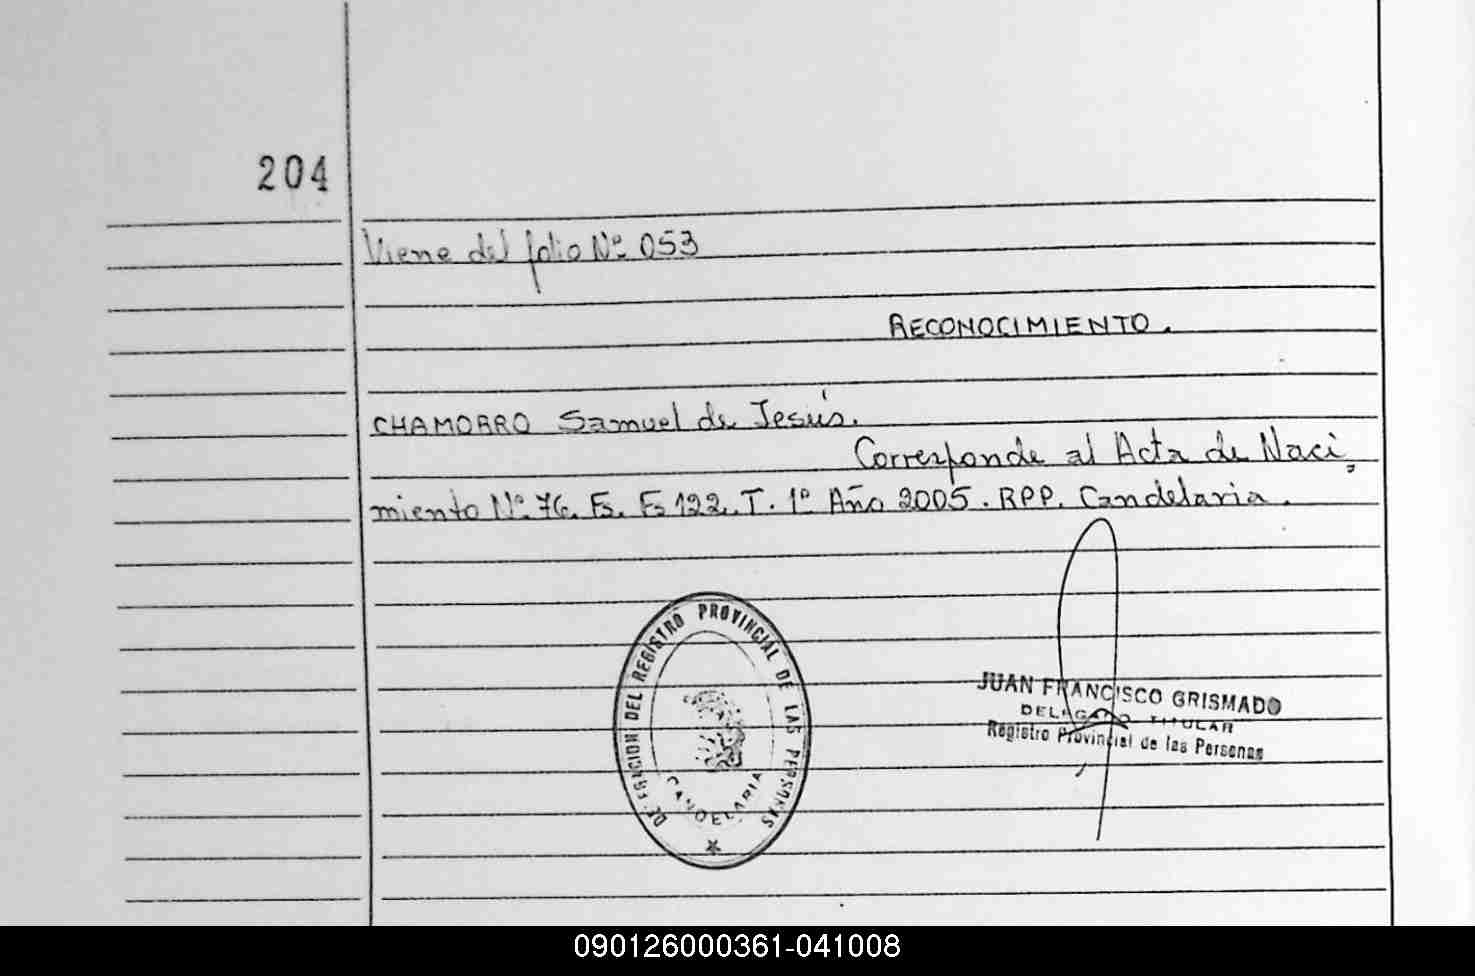 204
Viene del folio Nº 053
RECONOCIMIENTO.
CHAMORRO Samuel de Jesús.
Corresponde al Acta de Naci
miento Nº 76. Fs. Fs 122. T. 1º Año 2005. RPP. Candelaria.
DEL REGISTRO PROVINCIAL DE LAS PERSONAS
CANDELARIA
JUAN FRANCISCO GRISMADO
DELEGADO TITULAR
Registro Provincial de las Personas
090126000361-041008